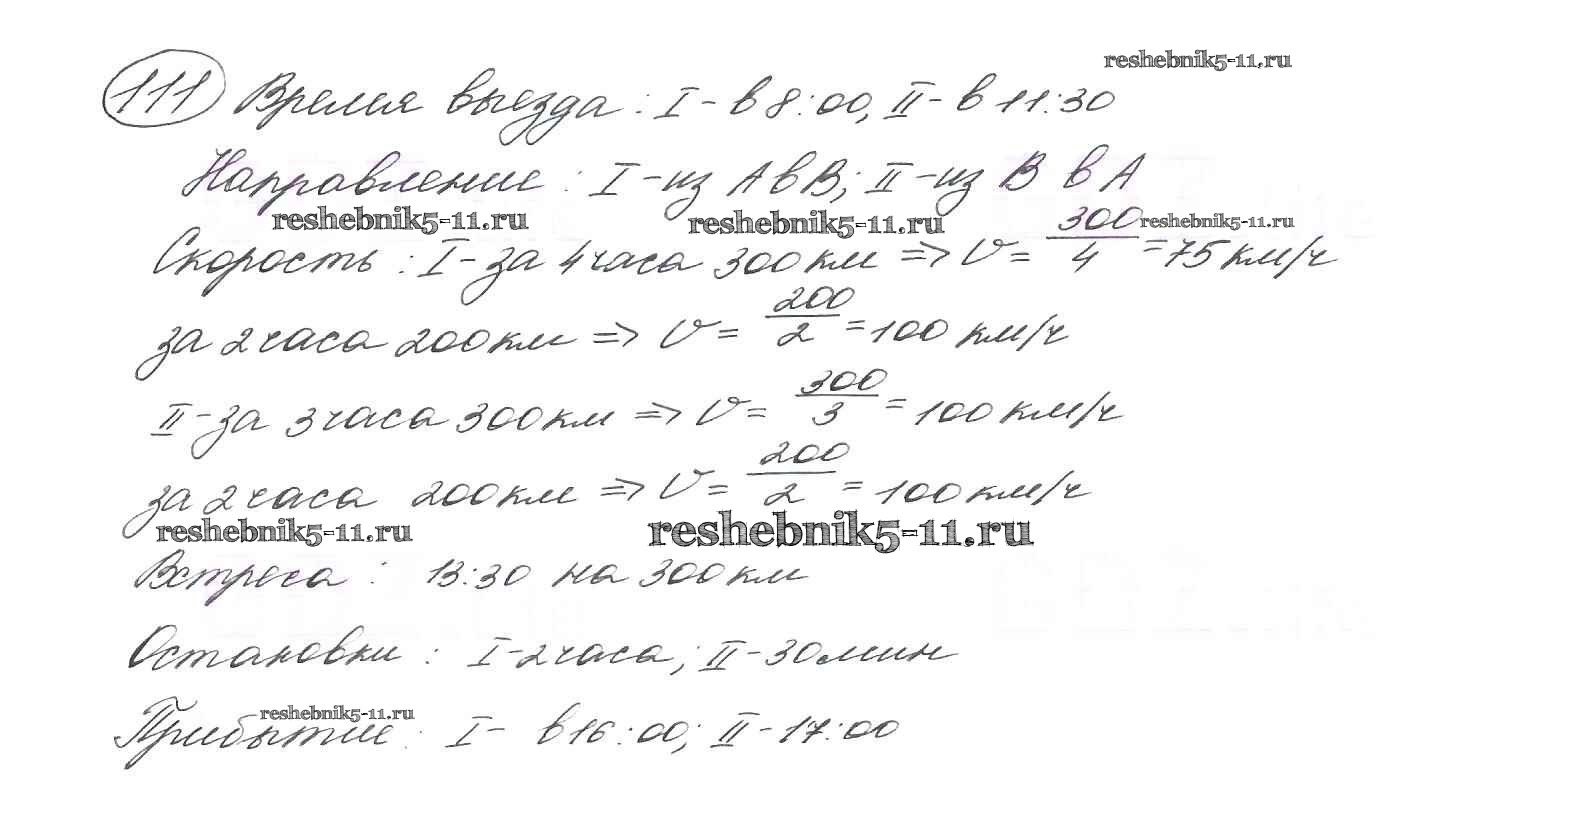 reshebnik5-11.ru
111 Время выезда: I - в 8:00, II - в 11:30
Направление: I - из А в В; II - из В в А
reshebnik5-11.ru reshebnik5-11.ru reshebnik5-11.ru
Скорость: I - за 4 часа 300 км => V = 300/4 = 75 км/ч
за 2 часа 200 км => V = 200/2 = 100 км/ч
II - за 3 часа 300 км => V = 300/3 = 100 км/ч
за 2 часа 200 км => V = 200/2 = 100 км/ч
reshebnik5-11.ru reshebnik5-11.ru
Встреча: 13:30 на 300 км
Остановки: I - 2 часа; II - 30 мин
reshebnik5-11.ru
Прибытие: I - в 16:00; II - 17:00